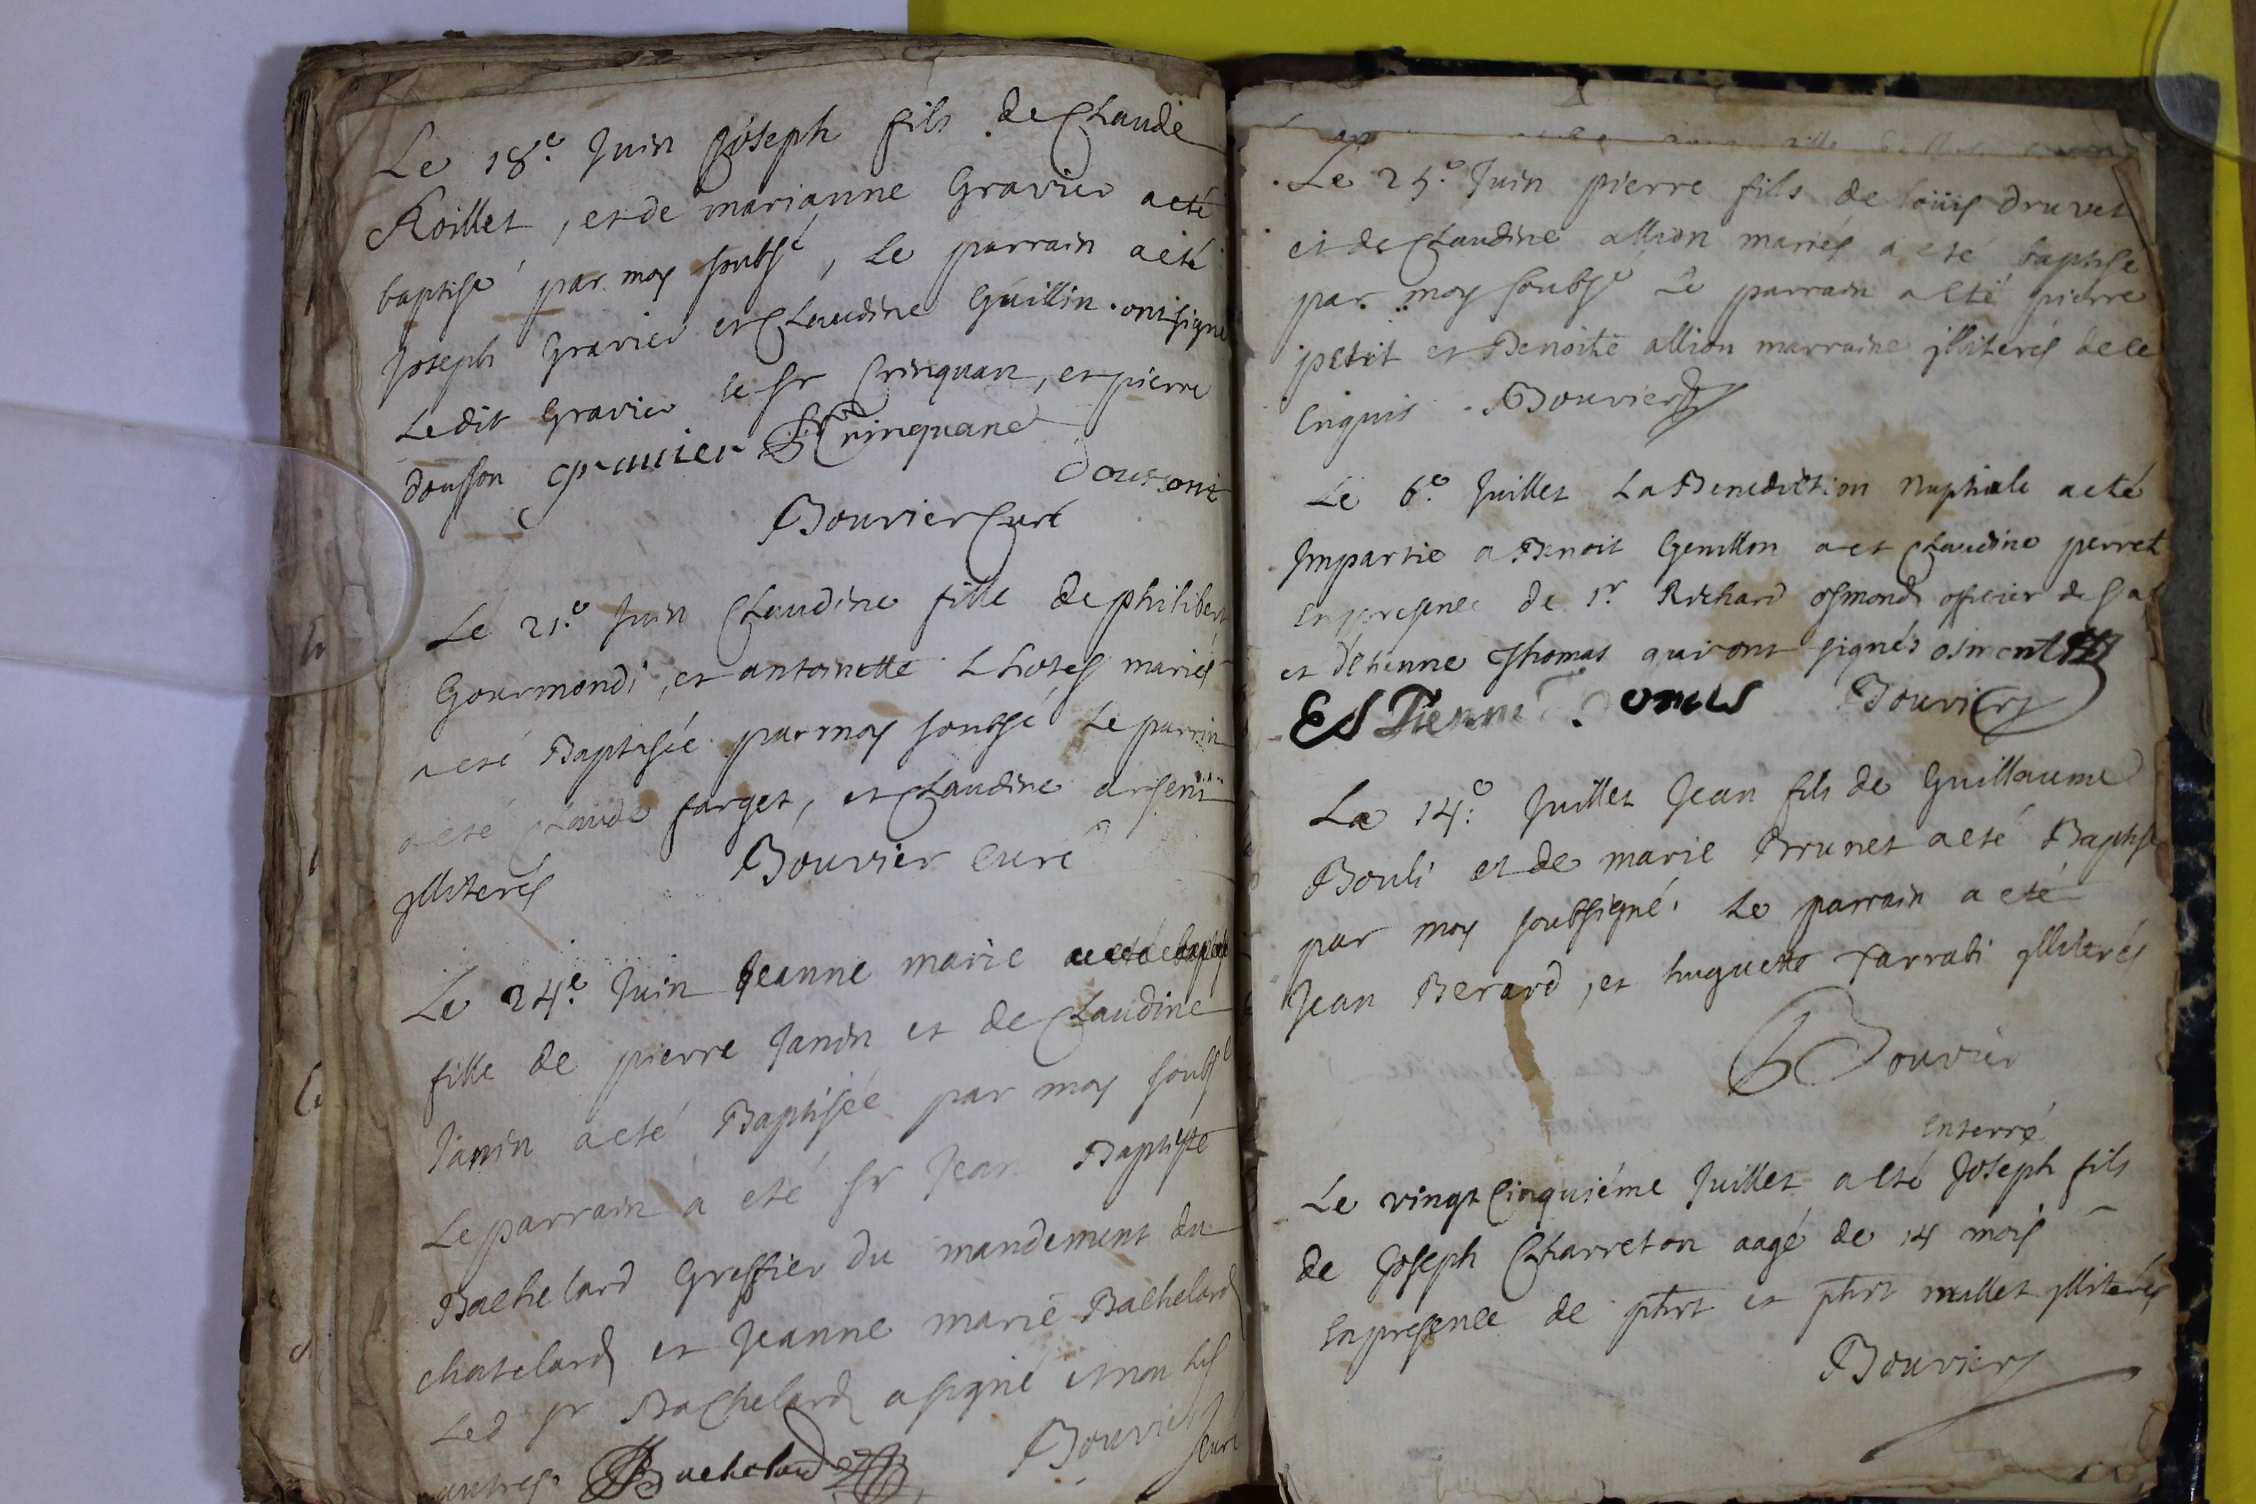 Le 18.e Juin Joseph fils de Claude
Roillet, et de marianne Gravier a eté
baptisé par moy soubsé, Le parrain a eté
Joseph Gravier et Claudine Guillin. ont signe
Ledit Gravier le sr Crinquan, et pierre
Dousson Gravier Crinquane
Doussont
Bouvier Curé
Le 21.e Juin Claudine fille de philibert
Gourmondi, et antoinette Lhoses mariés
a eté Baptisée par moy soubsé Le parrin
a eté Claude farget, et Claudine
jlliterés Bouvier Curé
Le 24.e Juin Jeanne marie
fille de pierre Janin et de Claudine
Janin a eté Baptisée par moy soubsé
Le parrain a eté sr Jean Baptiste
Bachelard Greffier du mandement du
chatelard et Jeanne marie Bachelard
Led sr Bachelard a signé et non les
autres. Bachelard Bouvier
Curé
Le 25.e Juin pierre fils de loüis Druvet
et de Claudine allion mariés a eté baptise
par moy soubsé Le parrain a eté pierre
petit et Benoite allion marraine jlliterés de ce
Enquis. Bouvier
Le 6.e Juillet La Benediction Nuptiale a eté
Impartie a Benoit Genillon et Claudine perret
En presence de sr Richard osmond officier de
et d'etienne Thomas qui ont signés osmont
EsTienne Bouvier
Le 14.e Juillet Jean fils de Guillaume
Bouli et de marie Brunet a eté Baptise
par moy soubsigné. Le parrain a eté
Jean Berard, et huguette jlliterés
Bouvier
Enterré
Le vingt Cinquiéme Juillet a eté Joseph fils
de Joseph Charreton aagé de 14 mois
En presence de phrt et phrt mallet jlliterés
Bouvier